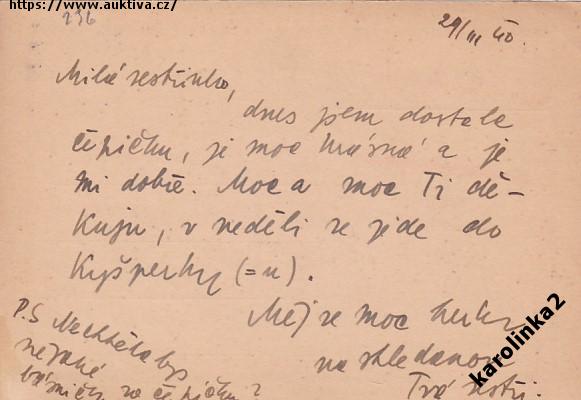 https://www.auktiva.cz/
236
29/III 40.
Milá sestřinko,
dnes jsem dostala
čepičku, je moc krásná a je
mi dobře. Moc a moc Ti dě-
kuju, v neděli se jede do
Kyšperku (=u).
Měj se moc hezky
na shledanou
Tvá sestř.
P.S Nechtěla bys
nějaké
básničky za čepičku?
karolinka2